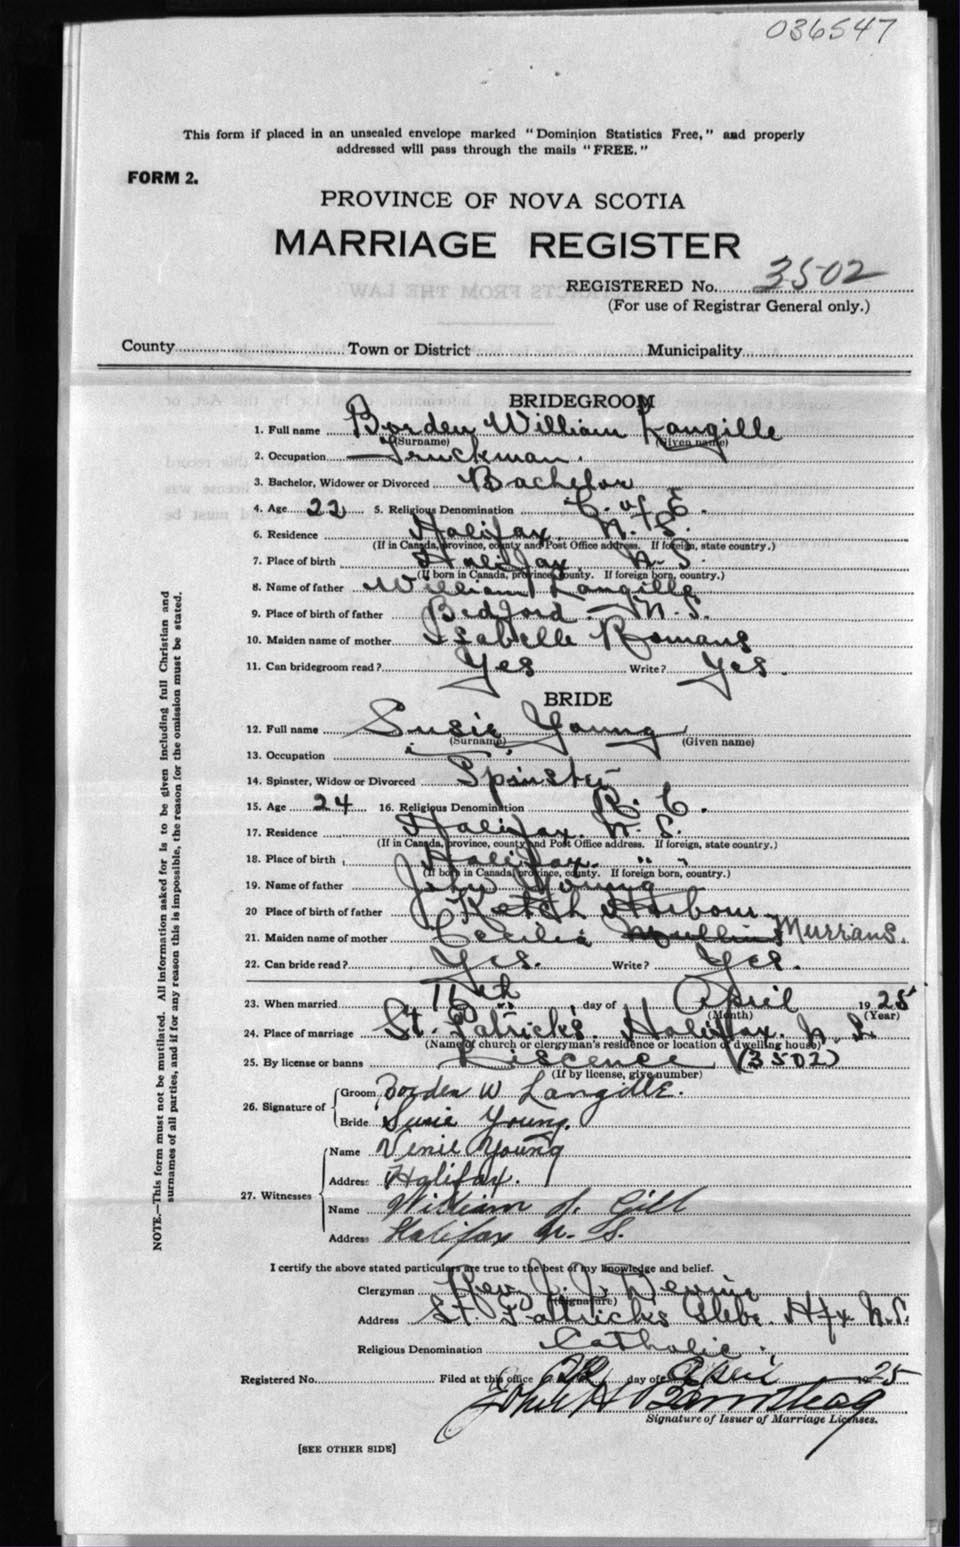 036547
This form if placed in an unsealed envelope marked "Dominion Statistics Free," and properly
addressed will pass through the mails "FREE."
FORM 2.
PROVINCE OF NOVA SCOTIA
MARRIAGE REGISTER
REGISTERED No. 3502
(For use of Registrar General only.)
County Town or District Municipality
BRIDEGROOM
1. Full name Borden William Langille
(Surname) (Given name)
2. Occupation Truckman.
3. Bachelor, Widower or Divorced Bachelor
4. Age 22 5. Religious Denomination C. of E.
6. Residence Halifax. N. S.
(If in Canada, province, county and Post Office address. If foreign, state country.)
7. Place of birth Halifax N. S.
(If born in Canada, province, county. If foreign born, country.)
8. Name of father William Langille
9. Place of birth of father Bedford N. S.
10. Maiden name of mother Isabelle Romans
11. Can bridegroom read? Yes Write? Yes.
BRIDE
12. Full name Susie Young
(Surname) (Given name)
13. Occupation
14. Spinster, Widow or Divorced Spinster
15. Age 24 16. Religious Denomination R. C.
17. Residence Halifax. N. S.
(If in Canada, province, county and Post Office address. If foreign, state country.)
18. Place of birth Halifax. " "
(If born in Canada, province, county. If foreign born, country.)
19. Name of father John Young
20 Place of birth of father Ketch Harbour
21. Maiden name of mother Cecilia Mullins Murrans.
22. Can bride read? Yes. Write? Yes.
23. When married 11th day of April 1925
(Month) (Year)
24. Place of marriage St. Patrick's. Halifax. N. S.
(Name of church or clergyman's residence or location of dwelling house)
25. By license or banns Liscence (3502)
(If by license, give number)
26. Signature of Groom Borden W Langille.
Bride Susie Young.
27. Witnesses
Name Venie Young
Address Halifax.
Name William J. Gill
Address Halifax N. S.
I certify the above stated particulars are true to the best of my knowledge and belief.
Clergyman Rev. J. J.
(Signature)
Address St. Patricks Glebe. Hfx N.S.
Religious Denomination Catholic.
Registered No. Filed at this office 22 day of April 1925
John H
Signature of Issuer of Marriage Licenses.
[SEE OTHER SIDE]
NOTE.—This form must not be mutilated. All information asked for is to be given including full Christian and
surnames of all parties, and if for any reason this is impossible, the reason for the omission must be stated.